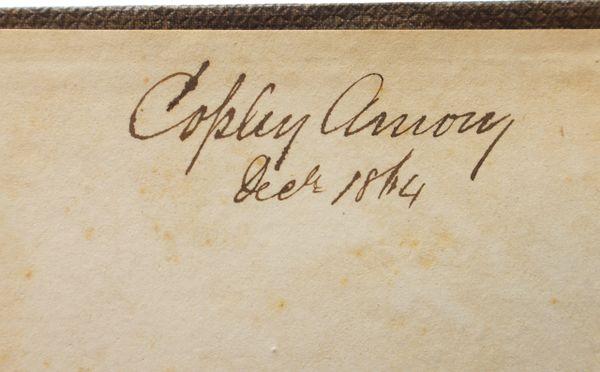 Copley Amory
Decr 1864